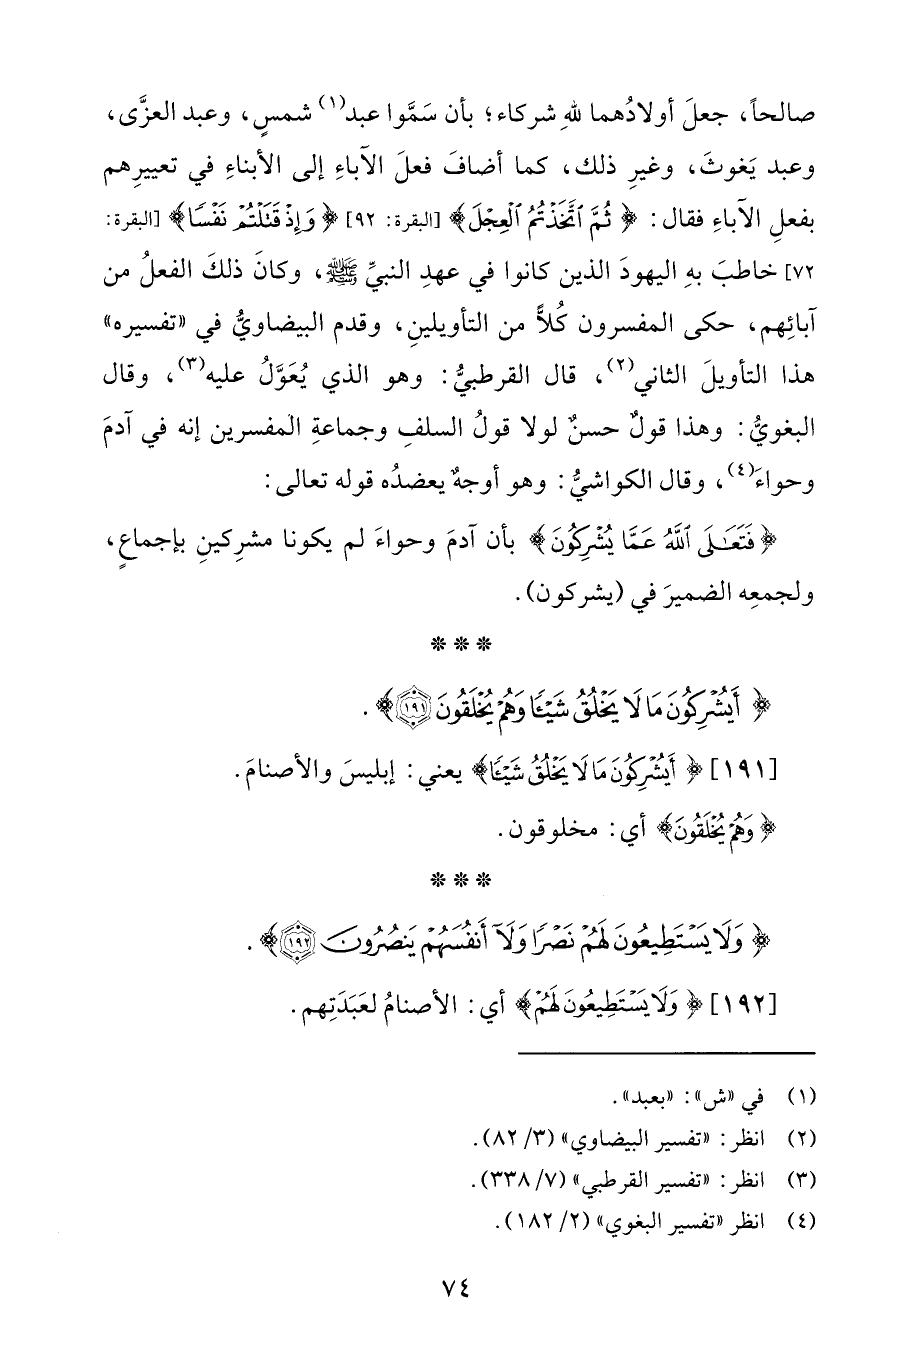 صالحاً، جعلَ أولادُهما للهِ شركاء؛ بأن سَمَّوا عبد(١) شمسٍ، وعبد العزَّى،
وعبد يَغوثَ، وغيرِ ذلك، كما أضافَ فعلَ الآباءِ إلى الأبناءِ في تعييرِهم
بفعلِ الآباءِ فقال: ﴿ثُمَّ ٱتَّخَذْتُمُ ٱلْعِجْلَ﴾ [البقرة: ٩٢] ﴿وَإِذْ قَتَلْتُمْ نَفْسًا﴾ [البقرة:
٧٢] خاطبَ بهِ اليهودَ الذين كانوا في عهدِ النبيِّ ﷺ، وكانَ ذلكَ الفعلُ من
آبائِهم، حكى المفسرون كُلاًّ من التأويلينِ، وقدم البيضاويُّ في «تفسيره»
هذا التأويلَ الثاني(٢)، قال القرطبيُّ: وهو الذي يُعَوَّلُ عليه(٣)، وقال
البغويُّ: وهذا قولٌ حسنٌ لولا قولُ السلفِ وجماعةِ المفسرين إنه في آدمَ
وحواءَ(٤)، وقال الكواشيُّ: وهو أوجهٌ يعضدُه قوله تعالى:
﴿فَتَعَٰلَى ٱللَّهُ عَمَّا يُشْرِكُونَ﴾ بأن آدمَ وحواءَ لم يكونا مشركينِ بإجماعٍ،
ولجمعِه الضميرَ في (يشركون).
***
﴿أَيُشْرِكُونَ مَا لَا يَخْلُقُ شَيْـًٔا وَهُمْ يُخْلَقُونَ ١٩١﴾.
[١٩١] ﴿أَيُشْرِكُونَ مَا لَا يَخْلُقُ شَيْـًٔا﴾ يعني: إبليسَ والأصنامَ.
﴿وَهُمْ يُخْلَقُونَ﴾ أي: مخلوقون.
***
﴿وَلَا يَسْتَطِيعُونَ لَهُمْ نَصْرًا وَلَآ أَنفُسَهُمْ يَنصُرُونَ ١٩٢﴾.
[١٩٢] ﴿وَلَا يَسْتَطِيعُونَ لَهُمْ﴾ أي: الأصنامُ لعَبَدَتِهم.
(١) في «ش»: «بعبد».
(٢) انظر: «تفسير البيضاوي» (٣/ ٨٢).
(٣) انظر: «تفسير القرطبي» (٧/ ٣٣٨).
(٤) انظر «تفسير البغوي» (٢/ ١٨٢).
٧٤